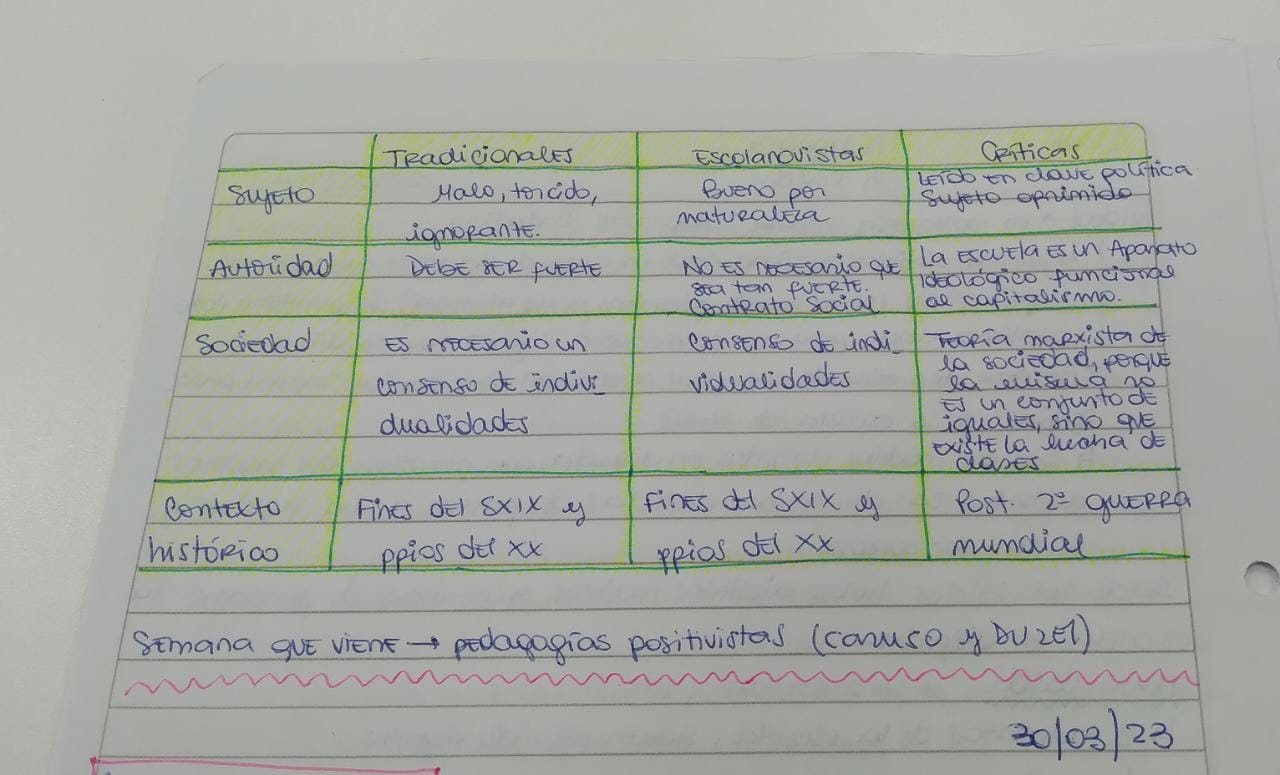 Tradicionales Escolanovistas Críticas
Sujeto
Malo, torcido,
ignorante.
Bueno por
naturaleza
Leído en clave política
Sujeto oprimido
Autoridad
Debe ser fuerte
No es necesario que
sea tan fuerte.
Contrato Social
La escuela es un Aparato
ideológico funcional
al capitalismo.
Sociedad
Es necesario un
consenso de indivi
dualidades
Consenso de indi
vidualidades
Teoría marxista de
la sociedad, porque
la misma no
es un conjunto de
iguales, sino que
existe la lucha de
clases
Contexto
histórico
Fines del SXIX y
ppios del XX
Fines del SXIX y
ppios del XX
Post. 2ª guerra
mundial
Semana que viene → pedagogías positivistas (Caruso y Duzel)
30/03/23